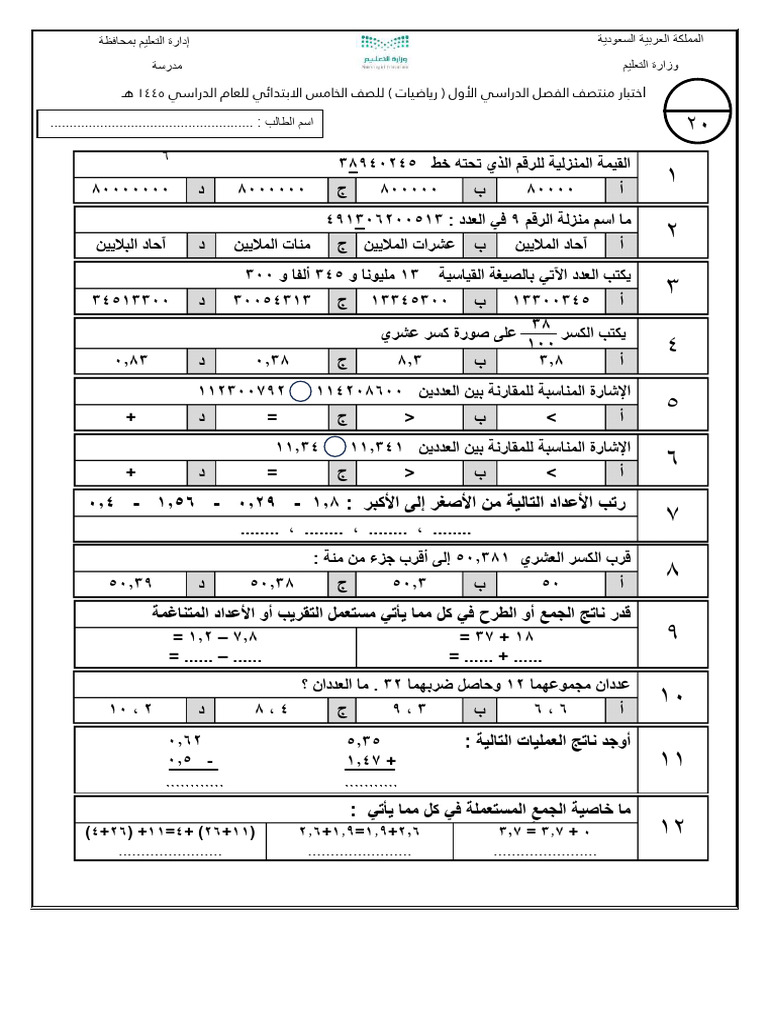 المملكة العربية السعودية
إدارة التعليم بمحافظة
وزارة التعليم
وزارة التعليم
مدرسة
اختبار منتصف الفصل الدراسي الأول ( رياضيات ) للصف الخامس الابتدائي للعام الدراسي ١٤٤٥ هـ
٢٠
اسم الطالب : .....................................................
١
القيمة المنزلية للرقم الذي تحته خط ٣٨٩٤٠٢٤٥
٦
أ ٨٠٠٠٠ ب ٨٠٠٠٠٠ ج ٨٠٠٠٠٠٠ د ٨٠٠٠٠٠٠٠
٢
ما اسم منزلة الرقم ٩ في العدد : ٤٩١٣٠٦٢٠٠٥١٣
أ آحاد الملايين ب عشرات الملايين ج منات الملايين د آحاد البلايين
٣
يكتب العدد الآتي بالصيغة القياسية ١٣ مليونا و ٣٤٥ ألفا و ٣٠٠
أ ١٣٣٠٠٣٤٥ ب ١٣٣٤٥٣٠٠ ج ٣٠٠٥٤٣١٣ د ٣٤٥١٣٣٠٠
٤
يكتب الكسر ٣٨/١٠٠ على صورة كسر عشري
أ ٣,٨ ب ٨,٣ ج ٠,٣٨ د ٠,٨٣
٥
الإشارة المناسبة للمقارنة بين العددين ١١٤٢٠٨٦٠٠ ◯ ١١٢٣٠٠٧٩٢
أ < ب > ج = د +
٦
الإشارة المناسبة للمقارنة بين العددين ١١,٣٤١ ◯ ١١,٣٤
أ < ب > ج = د +
٧
رتب الأعداد التالية من الأصغر إلى الأكبر : ١,٨ - ٠,٢٩ - ١,٥٦ - ٠,٤
........ ، ........ ، ........ ، ........
٨
قرب الكسر العشري ٥٠,٣٨١ إلى أقرب جزء من منة :
أ ٥٠ ب ٥٠,٣ ج ٥٠,٣٨ د ٥٠,٣٩
٩
قدر ناتج الجمع أو الطرح في كل مما يأتي مستعمل التقريب أو الأعداد المتناغمة
١٨ + ٣٧ =
٧,٨ – ١,٢ =
...... + ...... =
...... – ...... =
١٠
عددان مجموعهما ١٢ وحاصل ضربهما ٣٢ . ما العددان ؟
أ ٦ ، ٦ ب ٣ ، ٩ ج ٤ ، ٨ د ٢ ، ١٠
١١
أوجد ناتج العمليات التالية :
٥,٣٥
٠,٦٢
+ ١,٤٧
- ٠,٥
...........
............
١٢
ما خاصية الجمع المستعملة في كل مما يأتي :
٠ + ٣,٧ = ٣,٧
٢,٦+١,٩=١,٩+٢,٦
(١١+٢٦) +٤=١١+ (٢٦+٤)
.......................
.......................
.......................